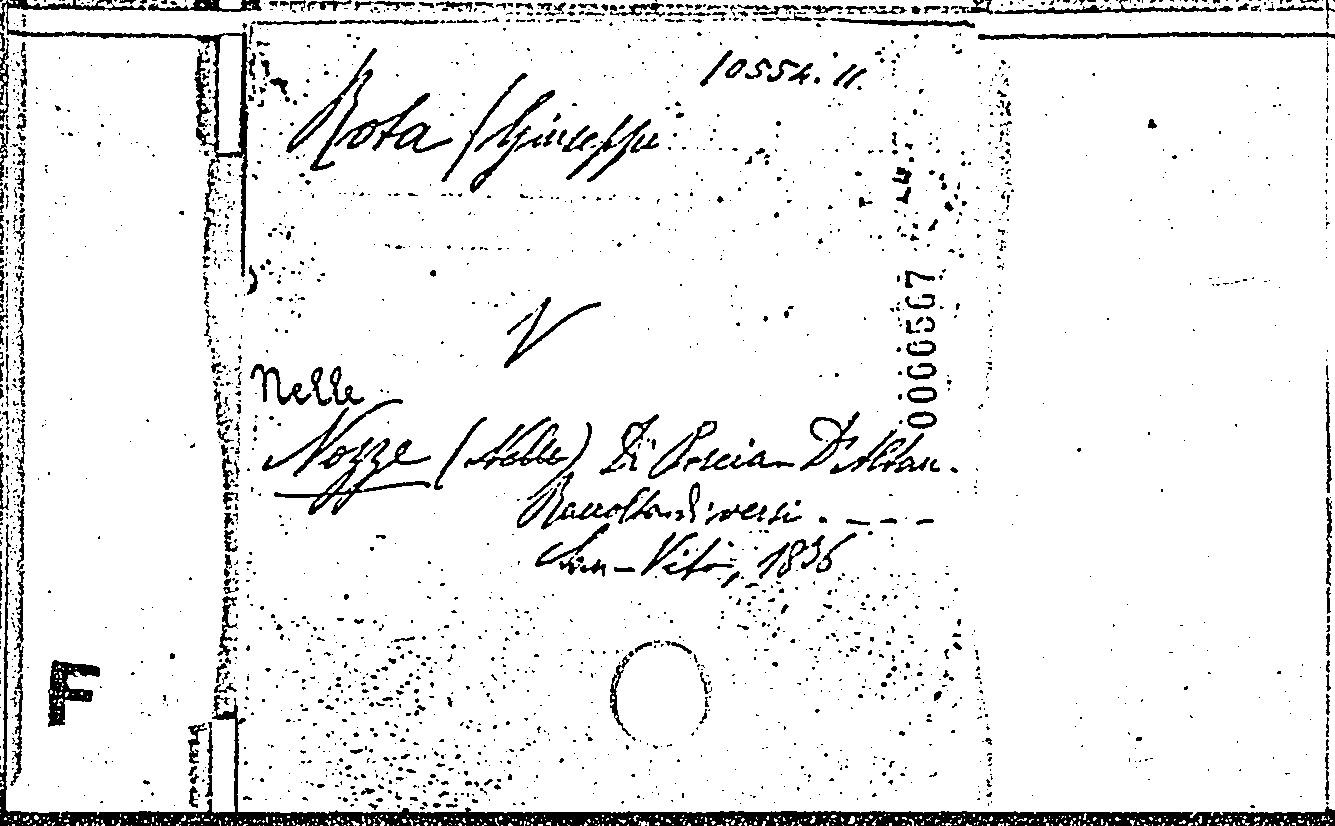 10554. 11.
Rota (Giuseppe
V
Nelle
Nozze (Nelle) Di Porcia D'Altan.
Raccolta di versi . - - - -
San-Vito, 1836
0000507
F